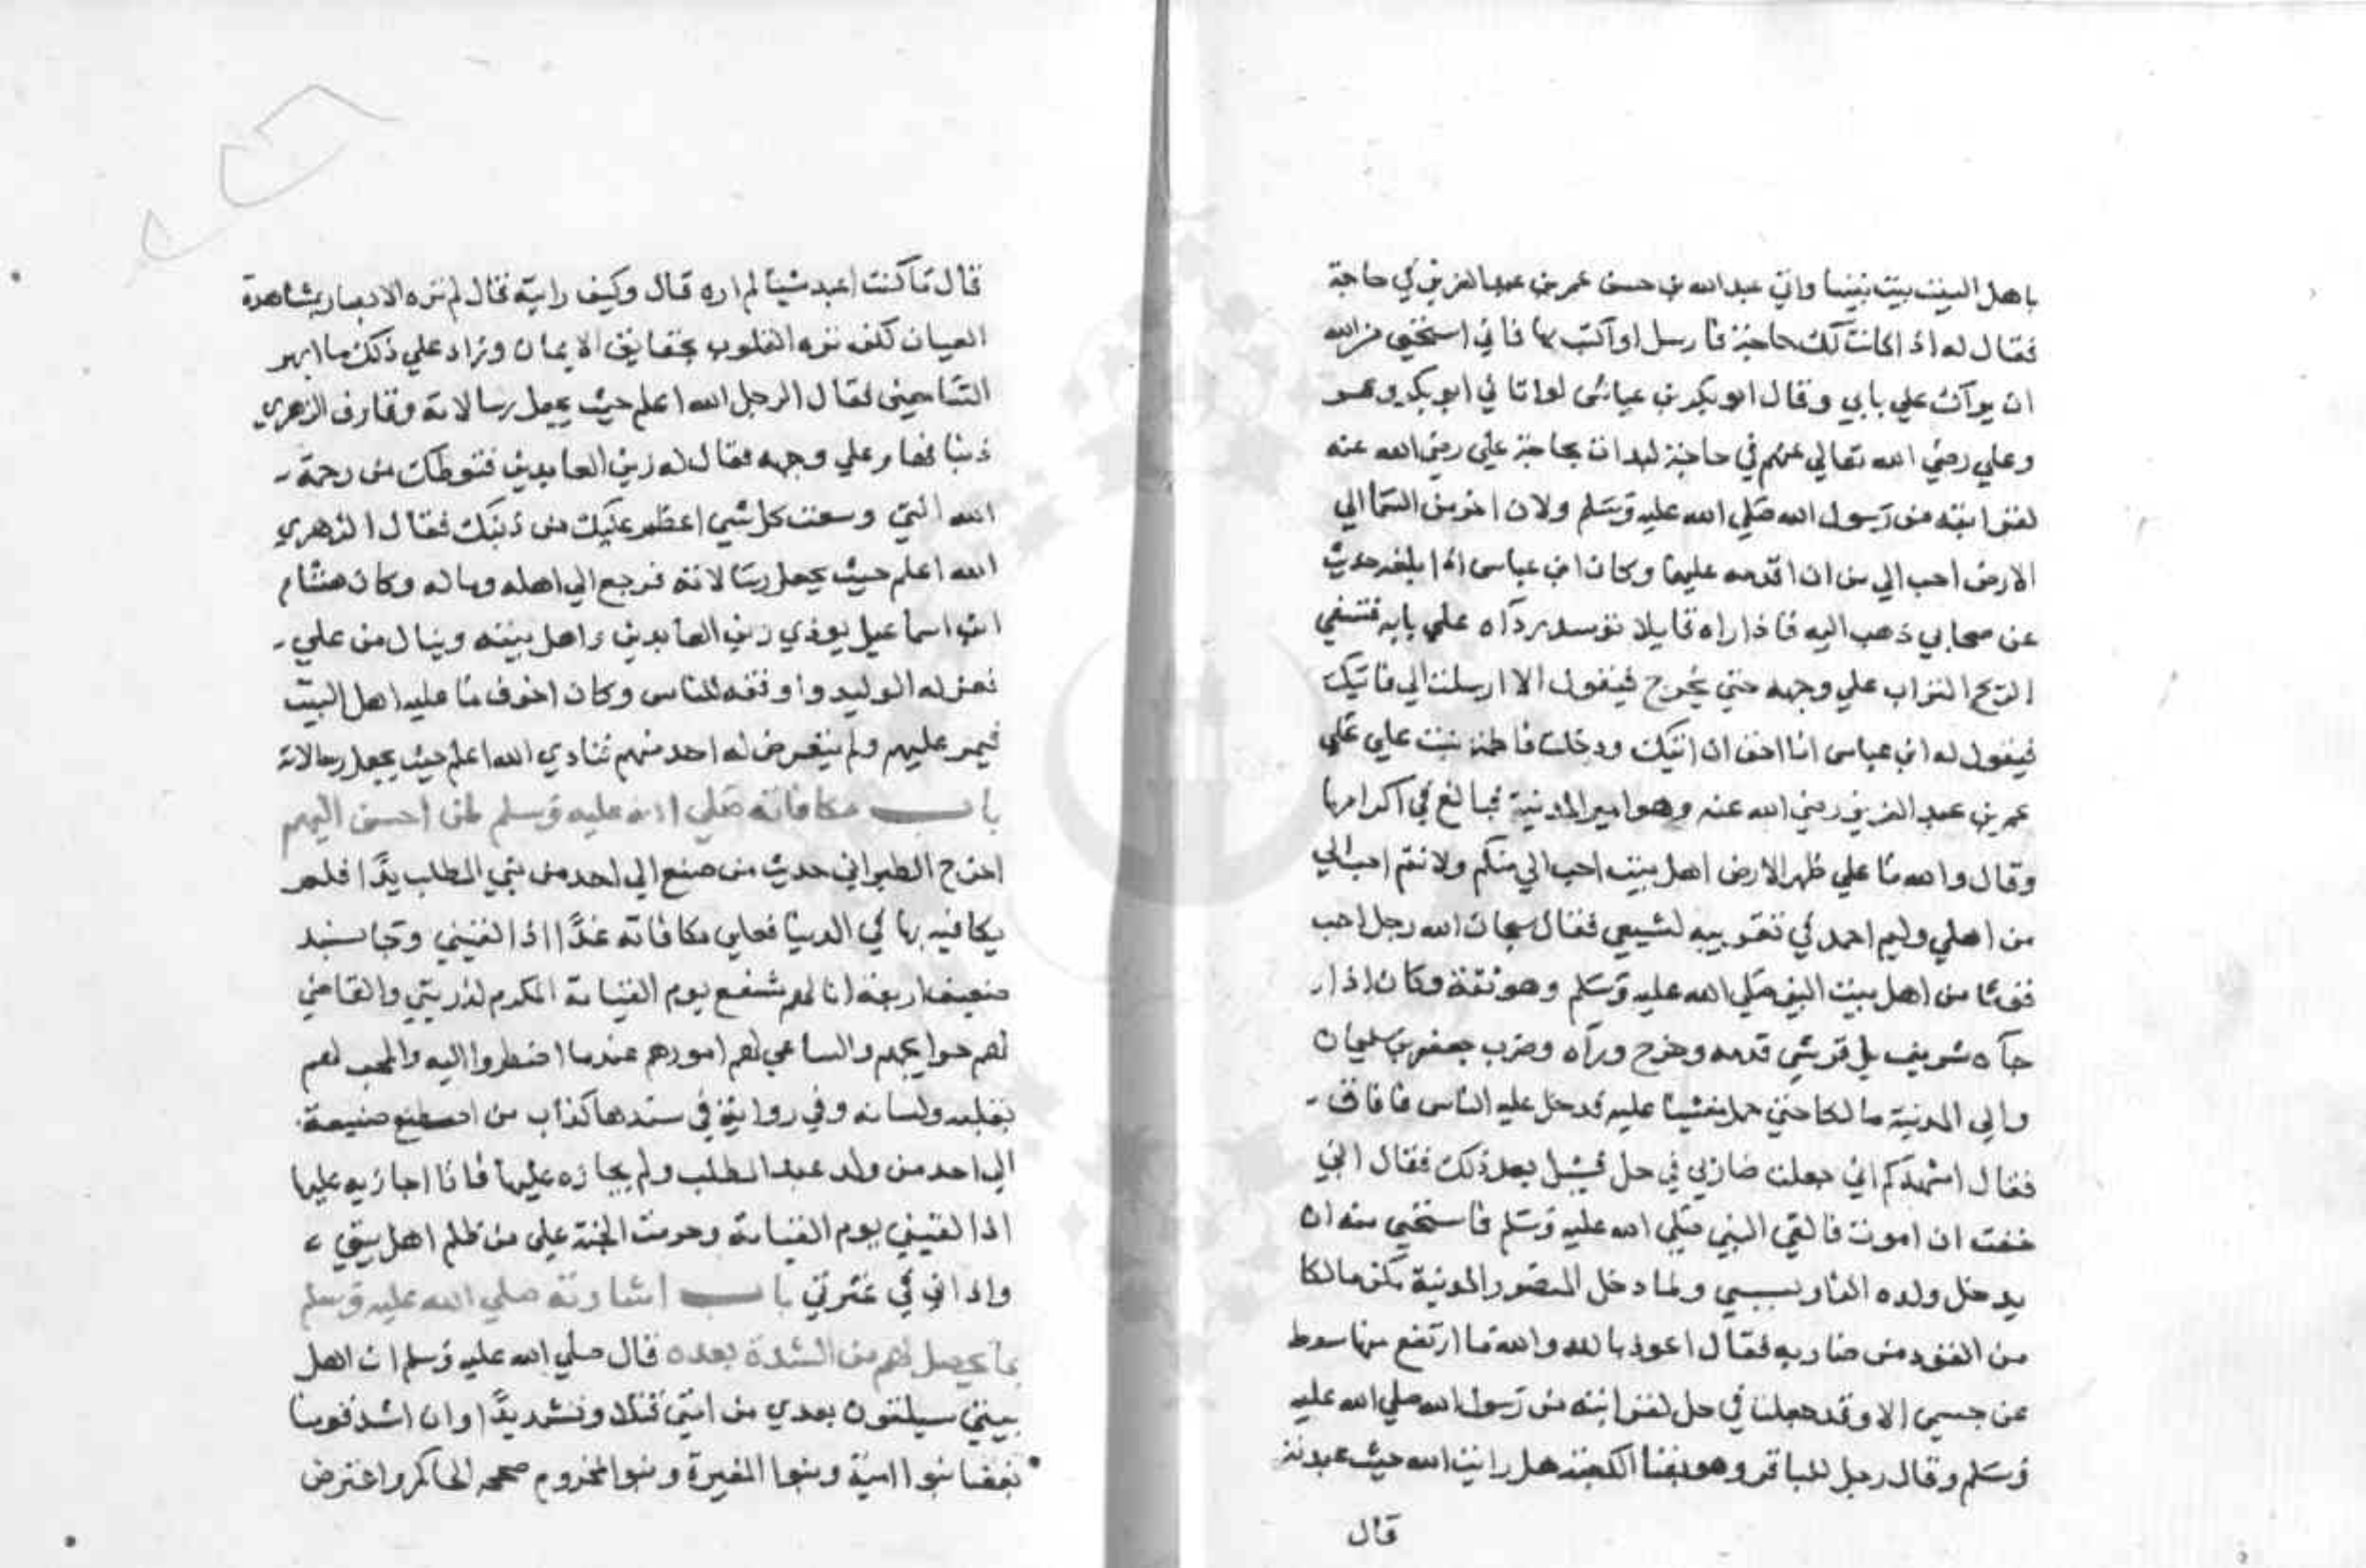 باهل البيت بيت بيتنا واتي عبدالله بن حسن عمر بن عبدالعزيز في حاجة
فقال له اذا كانت لك حاجة فارسل او اكتب بها فاني استحيي من الله
ان يراك علي بابي وقال ابو بكر بن عياش لو اتاني ابو بكر وعمر
وعلي رضي الله تعالي عنهم في حاجة لبدات بحاجة علي رضي الله عنه
لقرابته من رسول الله صلي الله عليه وسلم ولان اخر من السما الي
الارض احب الي من ان اقدمه عليهما وكان ابن عباس اذا بلغه حديث
عن صحابي ذهب اليه فاذا راه قايلا توسد رداه علي بابه فتسفي
الريح التراب علي وجهه حتي يخرج فيقول الا ارسلت الي فاتيك
فيقول له ابن عباس انا احق ان اتيك ودخلت فاطمة بنت علي علي
عمر بن عبد العزيز رضي الله عنه وهو امير المدينة فبالغ في اكرامها
وقال والله ما علي ظهر الارض اهل بيت احب الي منكم ولانتم احب الي
من اهلي وليم احمد في تقريبه لشيعي فقال سبحان الله رجل احب
قوما من اهل بيت النبي صلي الله عليه وسلم وهو ثقة وكان اذا
جآه شريف بل قرشي قدمه وخرج ورآه وضرب جعفر بن سليمان
والي المدينة مالكا حتي حمل مغشيا عليه فدخل عليه الناس فافاق
فقال اشهدكم اني جعلت ضاربي في حل فسيل بعد ذلك فقال اني
خفت ان اموت فالقي النبي صلي الله عليه وسلم فاستحيي منه ان
يدخل ولده النار بسببي ولما دخل المنصور المدينة مكن مالكا
من القود من ضاربه فقال اعوذ بالله والله ما ارتفع منها سوط
عن جسمي الا وقد جعلته في حل لقرابته من رسول الله صلي الله عليه
وسلم وقال رجل للباقر وهو بفنا الكعبة هل رايت الله حيث عبدته
قال
قال ما كنت اعبد شيئا لم اره قال وكيف رايته قال لم تره الابصار بمشاهدة
العيان لكن تره القلوب بحقايق الايمان وزاد علي ذلك ما ابهر
السامعين فقال الرجل الله اعلم حيث يجعل رسالاته وقارف الزهري
ذنبا فهام علي وجهه فقال له زين العابدين قنوطك من رحمة
الله التي وسعت كل شي اعظم عليك من ذنبك فقال الزهري
الله اعلم حيث يجعل رسالاته فرجع الي اهله وماله وكان هشام
ابن اسماعيل يوذي زين العابدين واهل بيته وينال من علي
فعزله الوليد واوقفه للناس وكان اخوف ما عليه اهل البيت
فيمر عليهم ولم يتعرض له احد منهم فنادي الله اعلم حيث يجعل رسالاته
باب مكافاته صلي الله عليه وسلم لمن احسن اليهم
اخرج الطبراني حديث من صنع الي احد من بني المطلب يدا فلم
يكافيه بها في الدنيا فعلي مكافاته غدا اذا لقيني وجا بسند
ضعيف اربعة انا لهم شفيع يوم القيامة المكرم لذريتي والقاضي
لهم حوايجهم والساعي لهم امورهم عندما اضطروا اليه والمحب لهم
بقلبه ولسانه وفي رواية في سندها كذاب من اصطنع صنيعة
الي احد من ولد عبد المطلب ولم يجازه عليها فانا اجازيه عليها
اذا لقيني يوم القيامة وحرمت الجنة علي من ظلم اهل بيتي
واذاني في عترتي باب اشارته صلي الله عليه وسلم
بما يحصل لهم من الشدة بعده قال صلي الله عليه وسلم ان اهل
بيتي سيلقون بعدي من امتي قتلا وتشديدا وان اشد قومنا
بغضا بنوا امية وبنوا المغيرة وبنوا مخزوم صححه الحاكم واعترض